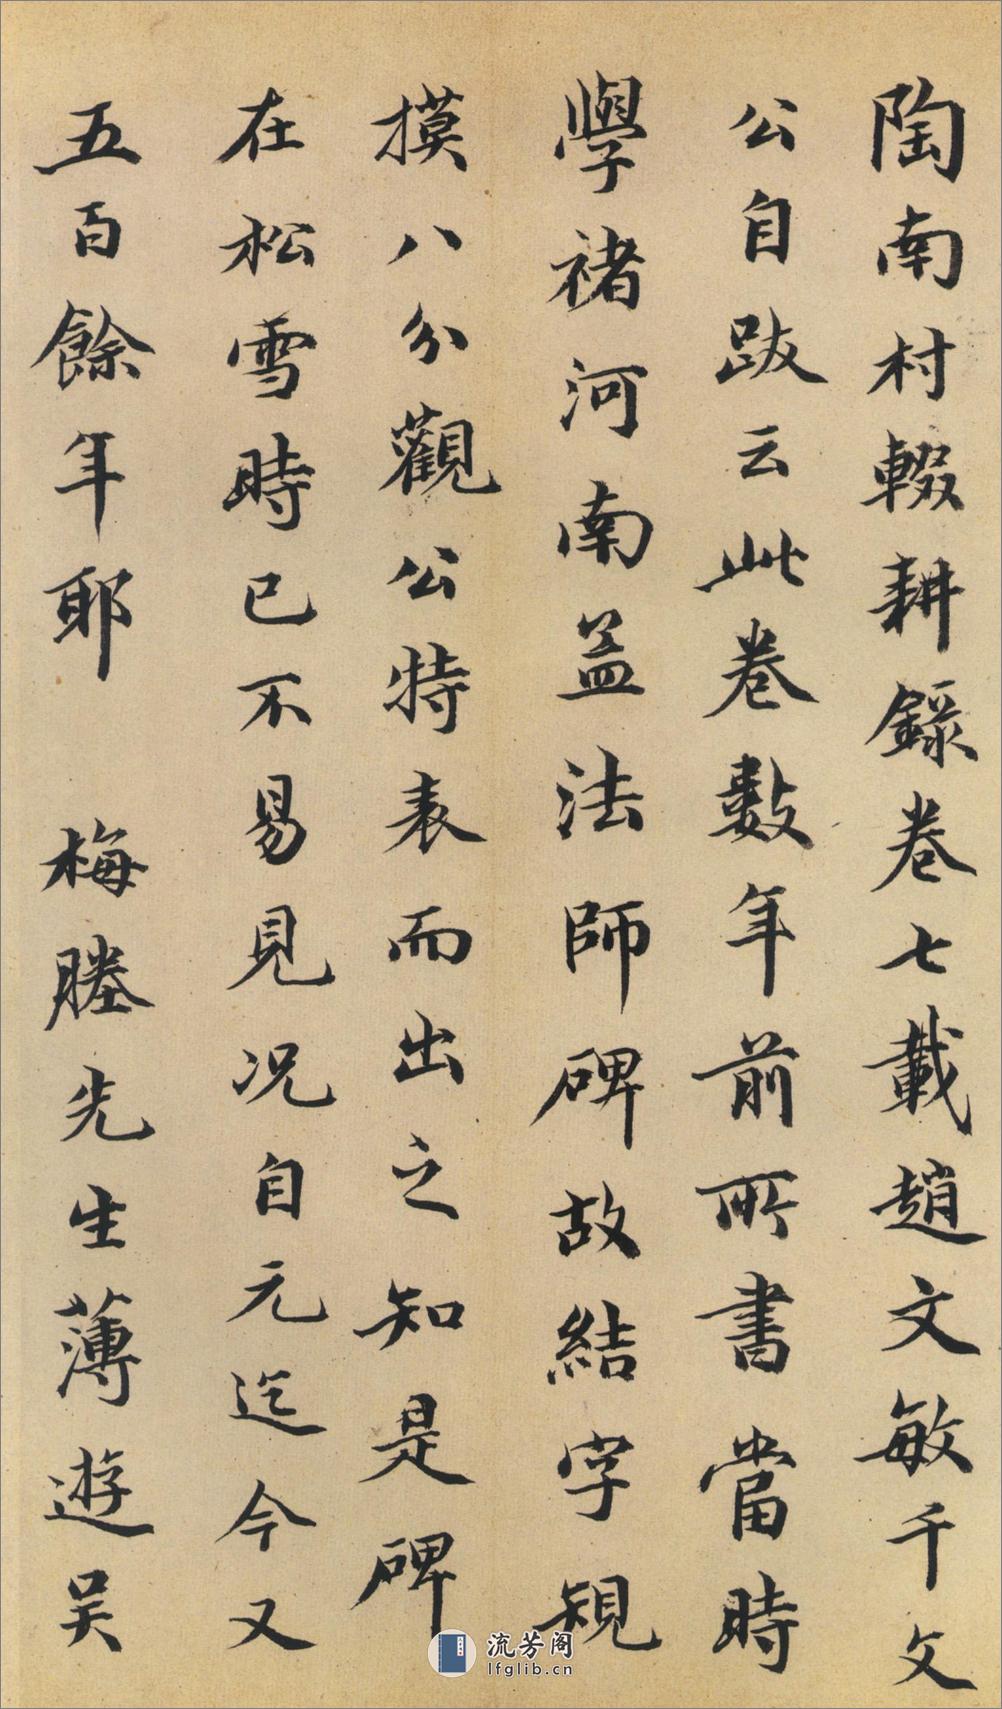 陶南村輟耕錄卷七載趙文敏千文
公自跋云此卷數年前所書當時
學褚河南孟法師碑故結字規
摸八分觀公特表而出之知是碑
在松雪時已不易見況自元迄今又
五百餘年耶 梅塍先生薄遊吴
流芳阁
lfglib.cn